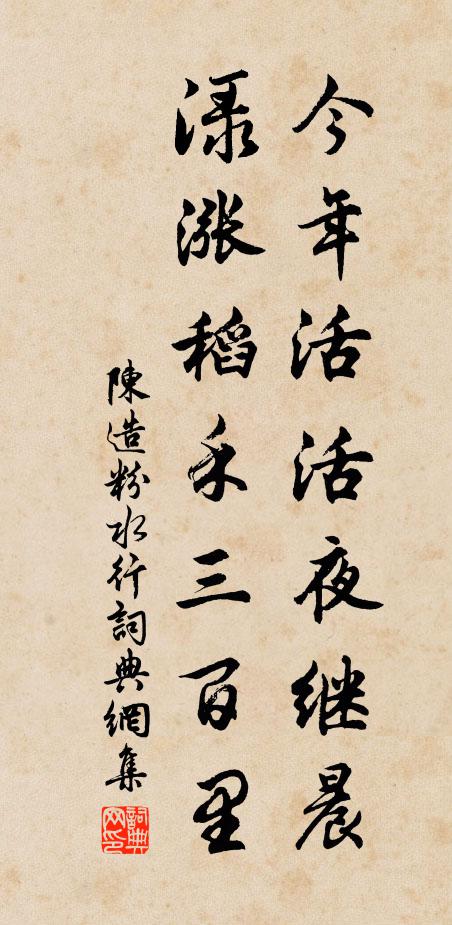 今年活活夜继晨
渌漲稻禾三百里
陳造粉水行詞典網集
詞典網印